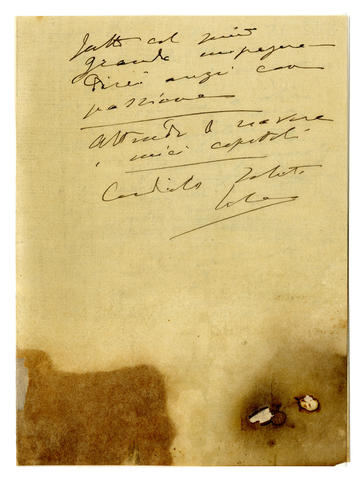 fatto col mio
grande impegno
Direi anzi con
passione
Attendo
i miei capitoli
Cordiale saluto